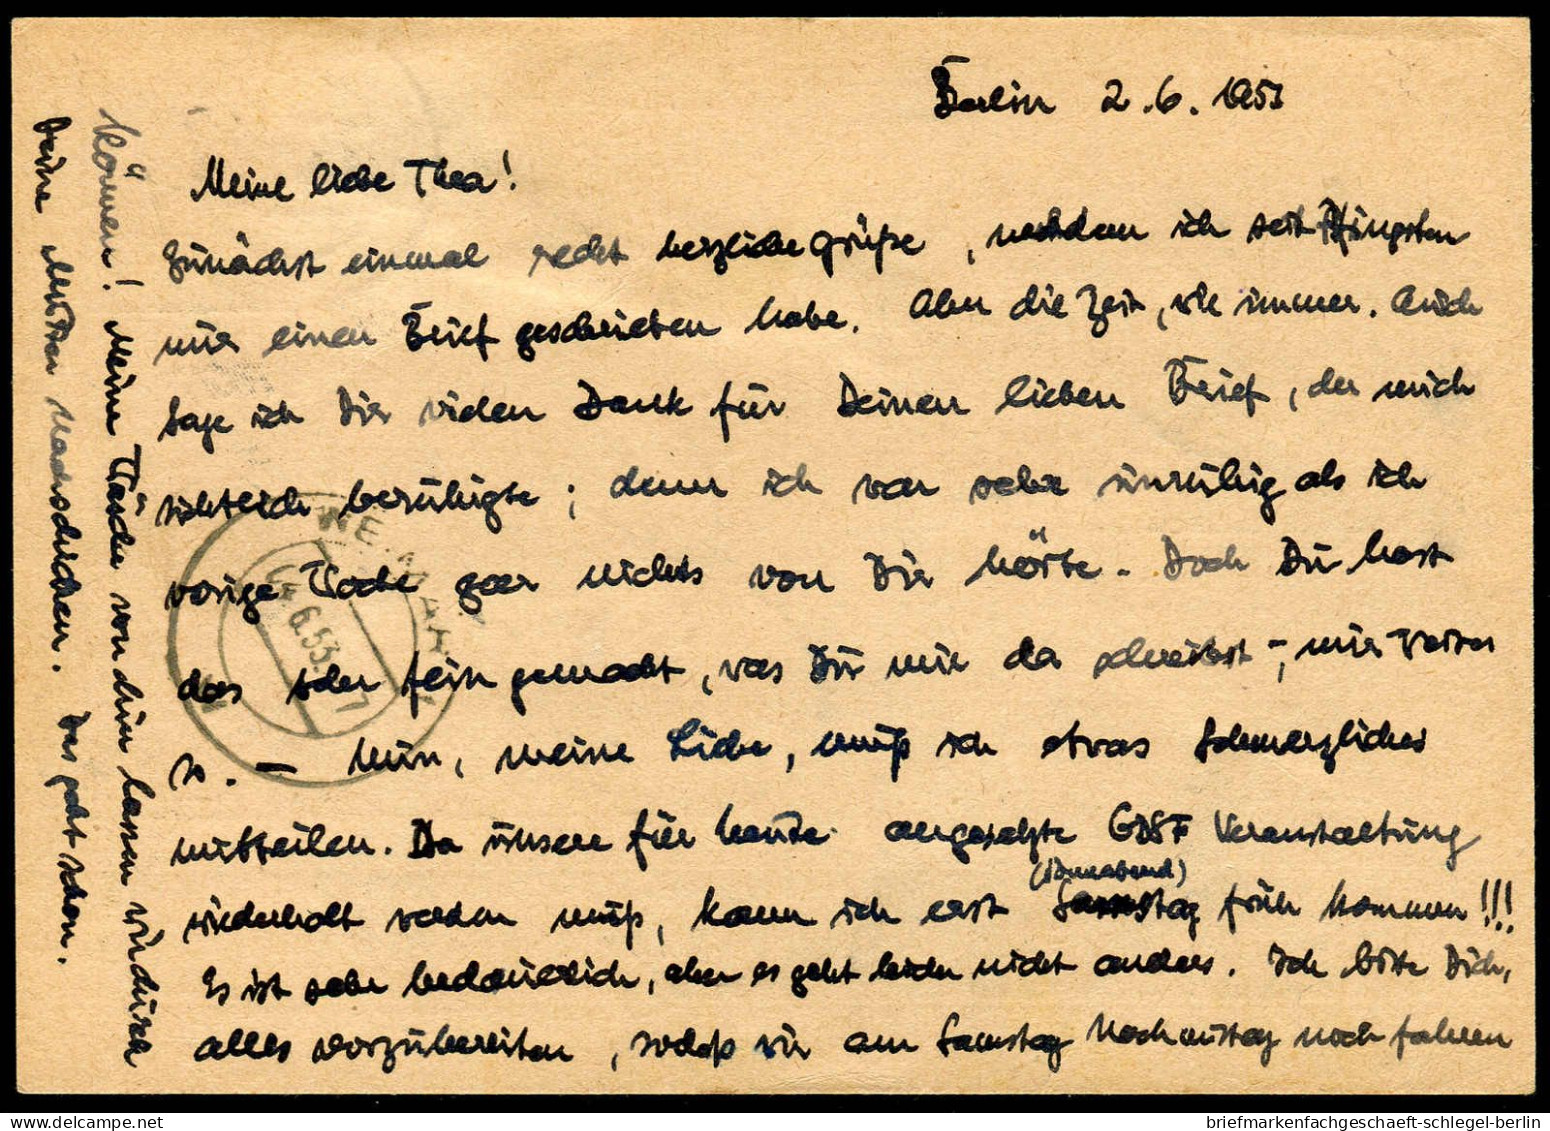 Berlin 2.6.1953
Meine liebe Thea!
Zunächst einmal recht herzliche Grüße, nachdem ich seit Pfingsten
nur einen Brief geschrieben habe. Aber die Zeit, wie immer. Auch
sage ich Dir vielen Dank für Deinen lieben Brief, der mich
sichtlich beruhigte; denn ich war sehr unruhig als ich
vorige Woche gar nichts von Dir hörte. Doch Du hast
das sehr fein gemacht, was Du mir da schreibst -, nur weiter
so. – Nun, meine Liebe, muß ich etwas Schmerzliches
mitteilen. Da unsere für heute angesetzte GDSF Veranstaltung
(Sonnabend)
wiederholt werden muß, kann ich erst Samstag früh kommen!!!
Es ist sehr bedauerlich, aber es geht leider nicht anders. Ich bitte Dich,
alles vorzubereiten, sodaß wir am Samstag Nachmittag noch fahren
können! Meine Wäsche von hier lassen wir durch
Deine Mutter nachschicken. Das geht schon.
WEIMAR
4.6.53.-7
briefmarkenfachgeschaeft-schlegel-berlin